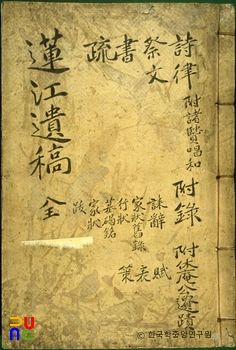 詩律
附諸賢唱和
祭文
書
疏
賦
表
策
附錄
誄辭
家狀舊錄
行狀
墓碣銘
家狀
跋
附休庵公遷蹟
蓮江遺稿 全
ⓒ 한국학중앙연구원